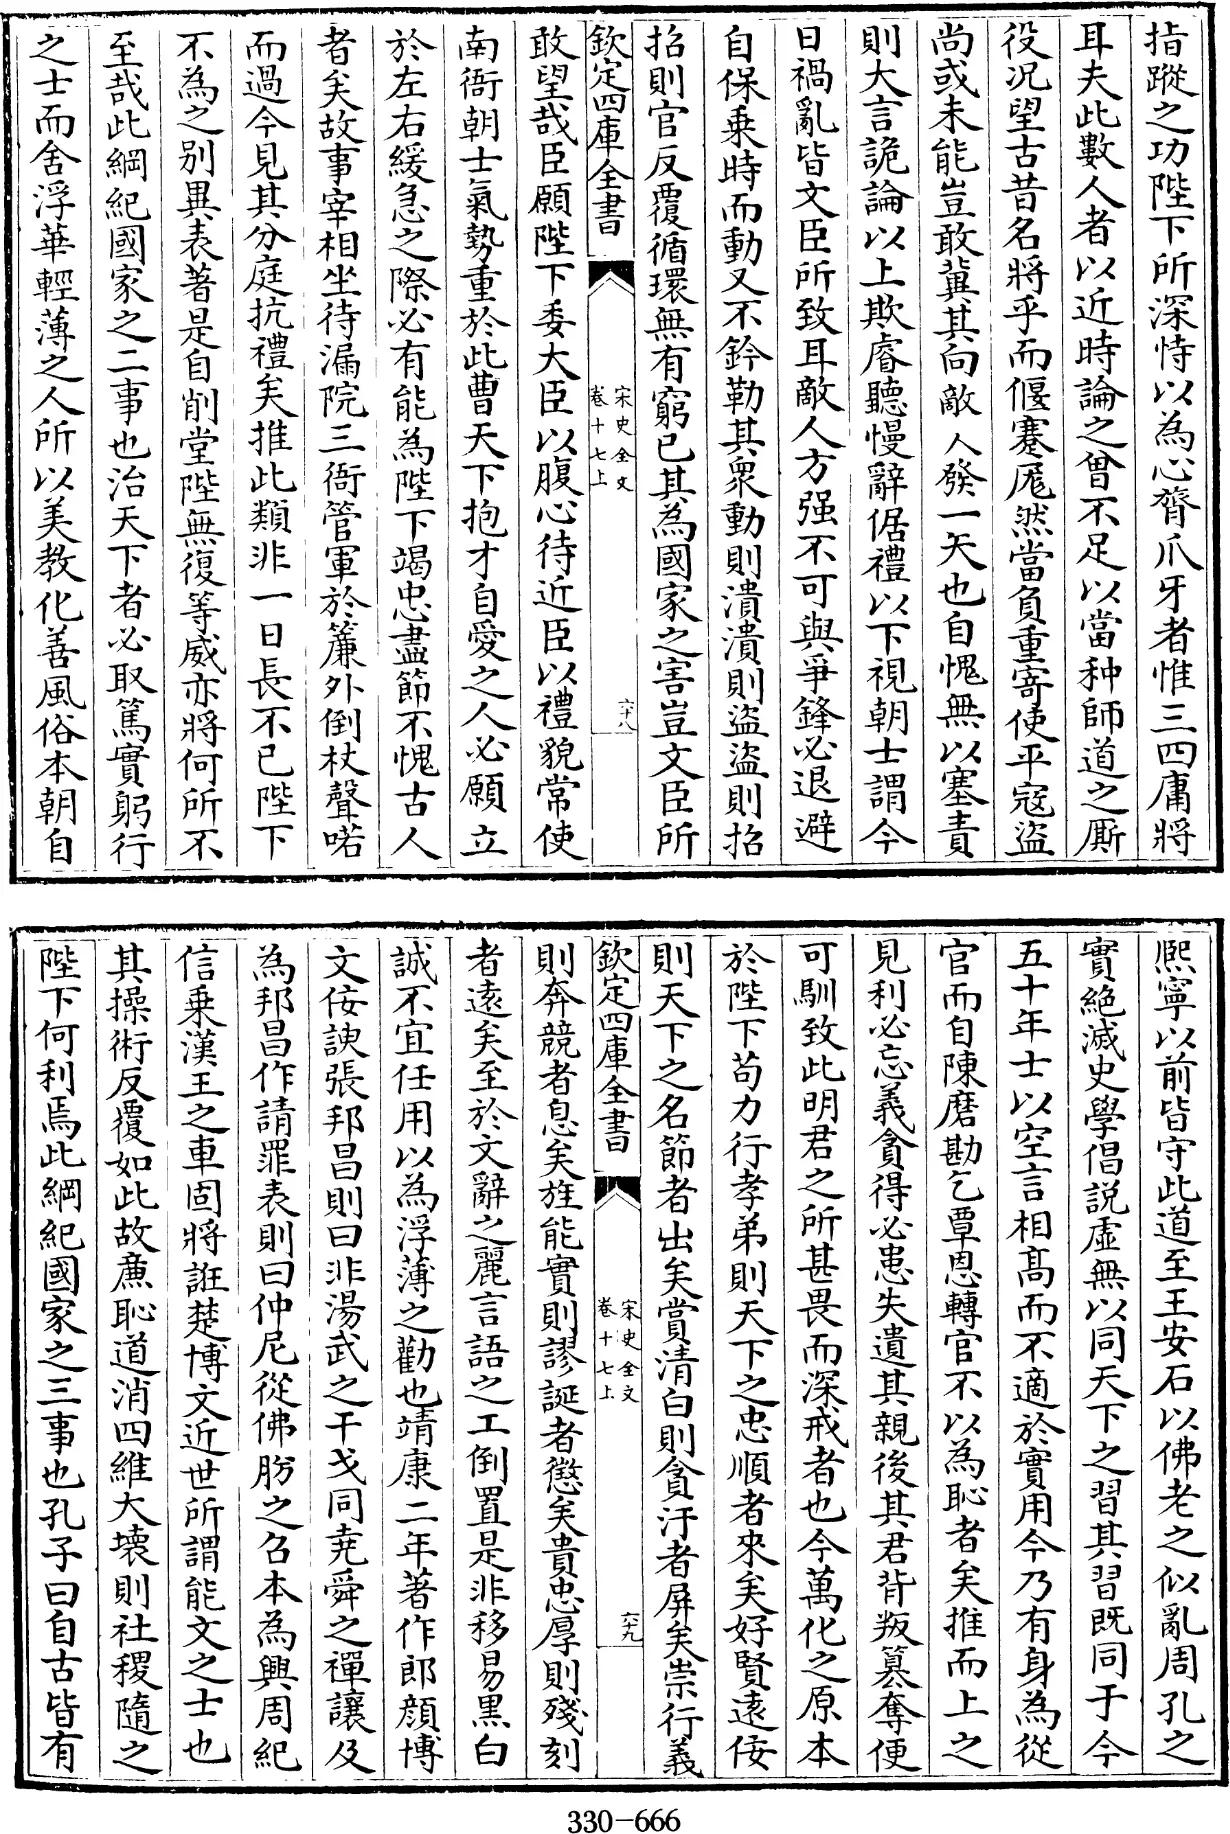 指蹤之功陛下所深恃以為心膂爪牙者惟三四庸將
耳夫此數人者以近時論之曾不足以當种師道之厮
役况望古昔名將乎而偃蹇厖然當負重寄使平寇盜
尚或未能豈敢冀其向敵人發一矢也自愧無以塞責
則大言詭論以上欺睿聽慢辭倨禮以下視朝士謂今
日禍亂皆文臣所致耳敵人方强不可與爭鋒必退避
自保乗時而動又不鈐勒其衆動則潰潰則盜盜則招
招則官反覆循環無有窮已其為國家之害豈文臣所
欽定四庫全書
宋史全文
卷十七上
六十八
敢望哉臣願陛下委大臣以腹心待近臣以禮貌常使
南衙朝士氣勢重於此曹天下抱才自愛之人必願立
於左右緩急之際必有能為陛下竭忠盡節不愧古人
者矣故事宰相坐待漏院三衙管軍於簾外倒杖聲喏
而過今見其分庭抗禮矣推此類非一日長不已陛下
不為之别異表著是自削堂陛無復等威亦將何所不
至哉此綱紀國家之二事也治天下者必取篤實躬行
之士而舍浮華輕薄之人所以美教化善風俗本朝自
熈寧以前皆守此道至王安石以佛老之似亂周孔之
實絶滅史學倡説虚無以同天下之習其習既同于今
五十年士以空言相髙而不適於實用今乃有身為從
官而自陳磨勘乞覃恩轉官不以為恥者矣推而上之
見利必忘義貪得必患失遺其親後其君背叛簒奪便
可馴致此明君之所甚畏而深戒者也今萬化之原本
於陛下苟力行孝弟則天下之忠順者來矣好賢遠佞
則天下之名節者出矣賞清白則貪汙者屏矣崇行義
欽定四庫全書
宋史全文
卷十七上
六十九
則奔競者息矣旌能實則謬誕者懲矣貴忠厚則殘刻
者遠矣至於文辭之麗言語之工倒置是非移易黒白
誠不宜任用以為浮薄之勸也靖康二年著作郎顔博
文佞諛張邦昌則曰非湯武之干戈同尭舜之禪讓及
為邦昌作請罪表則曰仲尼從佛肸之召本為興周紀
信乗漢王之車固將誑楚博文近世所謂能文之士也
其操術反覆如此故亷恥道消四維大壊則社稷隨之
陛下何利焉此綱紀國家之三事也孔子曰自古皆有
330-666